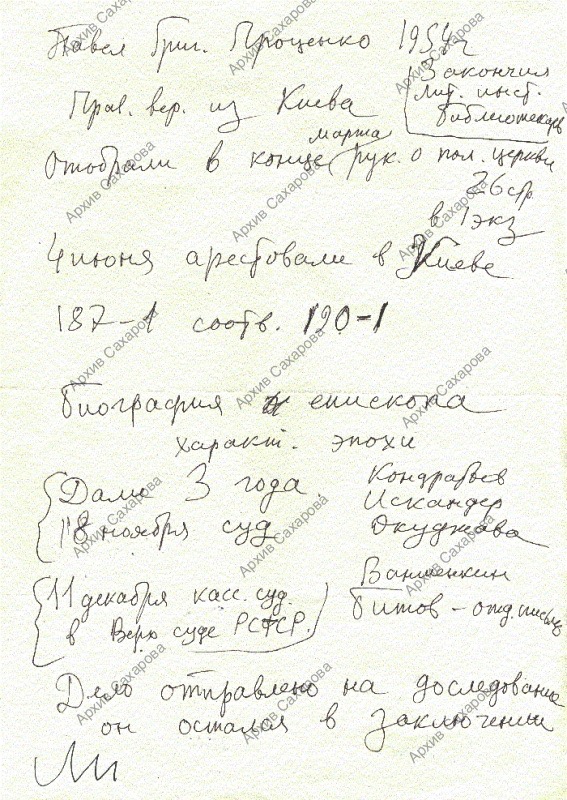 Павел Григ. Проценко 1954г
Закончил
лит. инст.
библиотекарь
Прав. вер. из Киева
марта
Отобрали в конце рук. о пол. церкви
26 стр.
в 1 экз
4 июня арестовали в Киеве
187-1 соотв. 190-1
Биография епископа
характ. эпохи
Дали 3 года.
18 ноября суд
Кондратьев
Искандер
Окуджава
Ваншенкин
Битов - отд. письмо
11 декабря касс. суд.
в Верх суде РСФСР.
Дело отправлено на доследование
он остался в заключении
Архив Сахарова